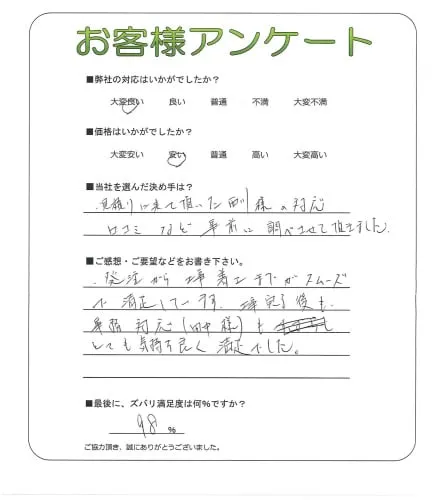 お客様アンケート
■弊社の対応はいかがでしたか？
大変良い 良い 普通 不満 大変不満
■価格はいかがでしたか？
大変安い 安い 普通 高い 大変高い
■当社を選んだ決め手は？
見積りに来て頂いた 様の対応
口コミなど事前に調べさせて頂きました。
■ご感想・ご要望などをお書き下さい。
発注から工事着工までがスムーズ
で満足しています。工事完了後も
事務対応(田中様)も
とても気持ち良く満足でした。
■最後に、ズバリ満足度は何％ですか？
98 ％
ご協力頂き、誠にありがとうございました。